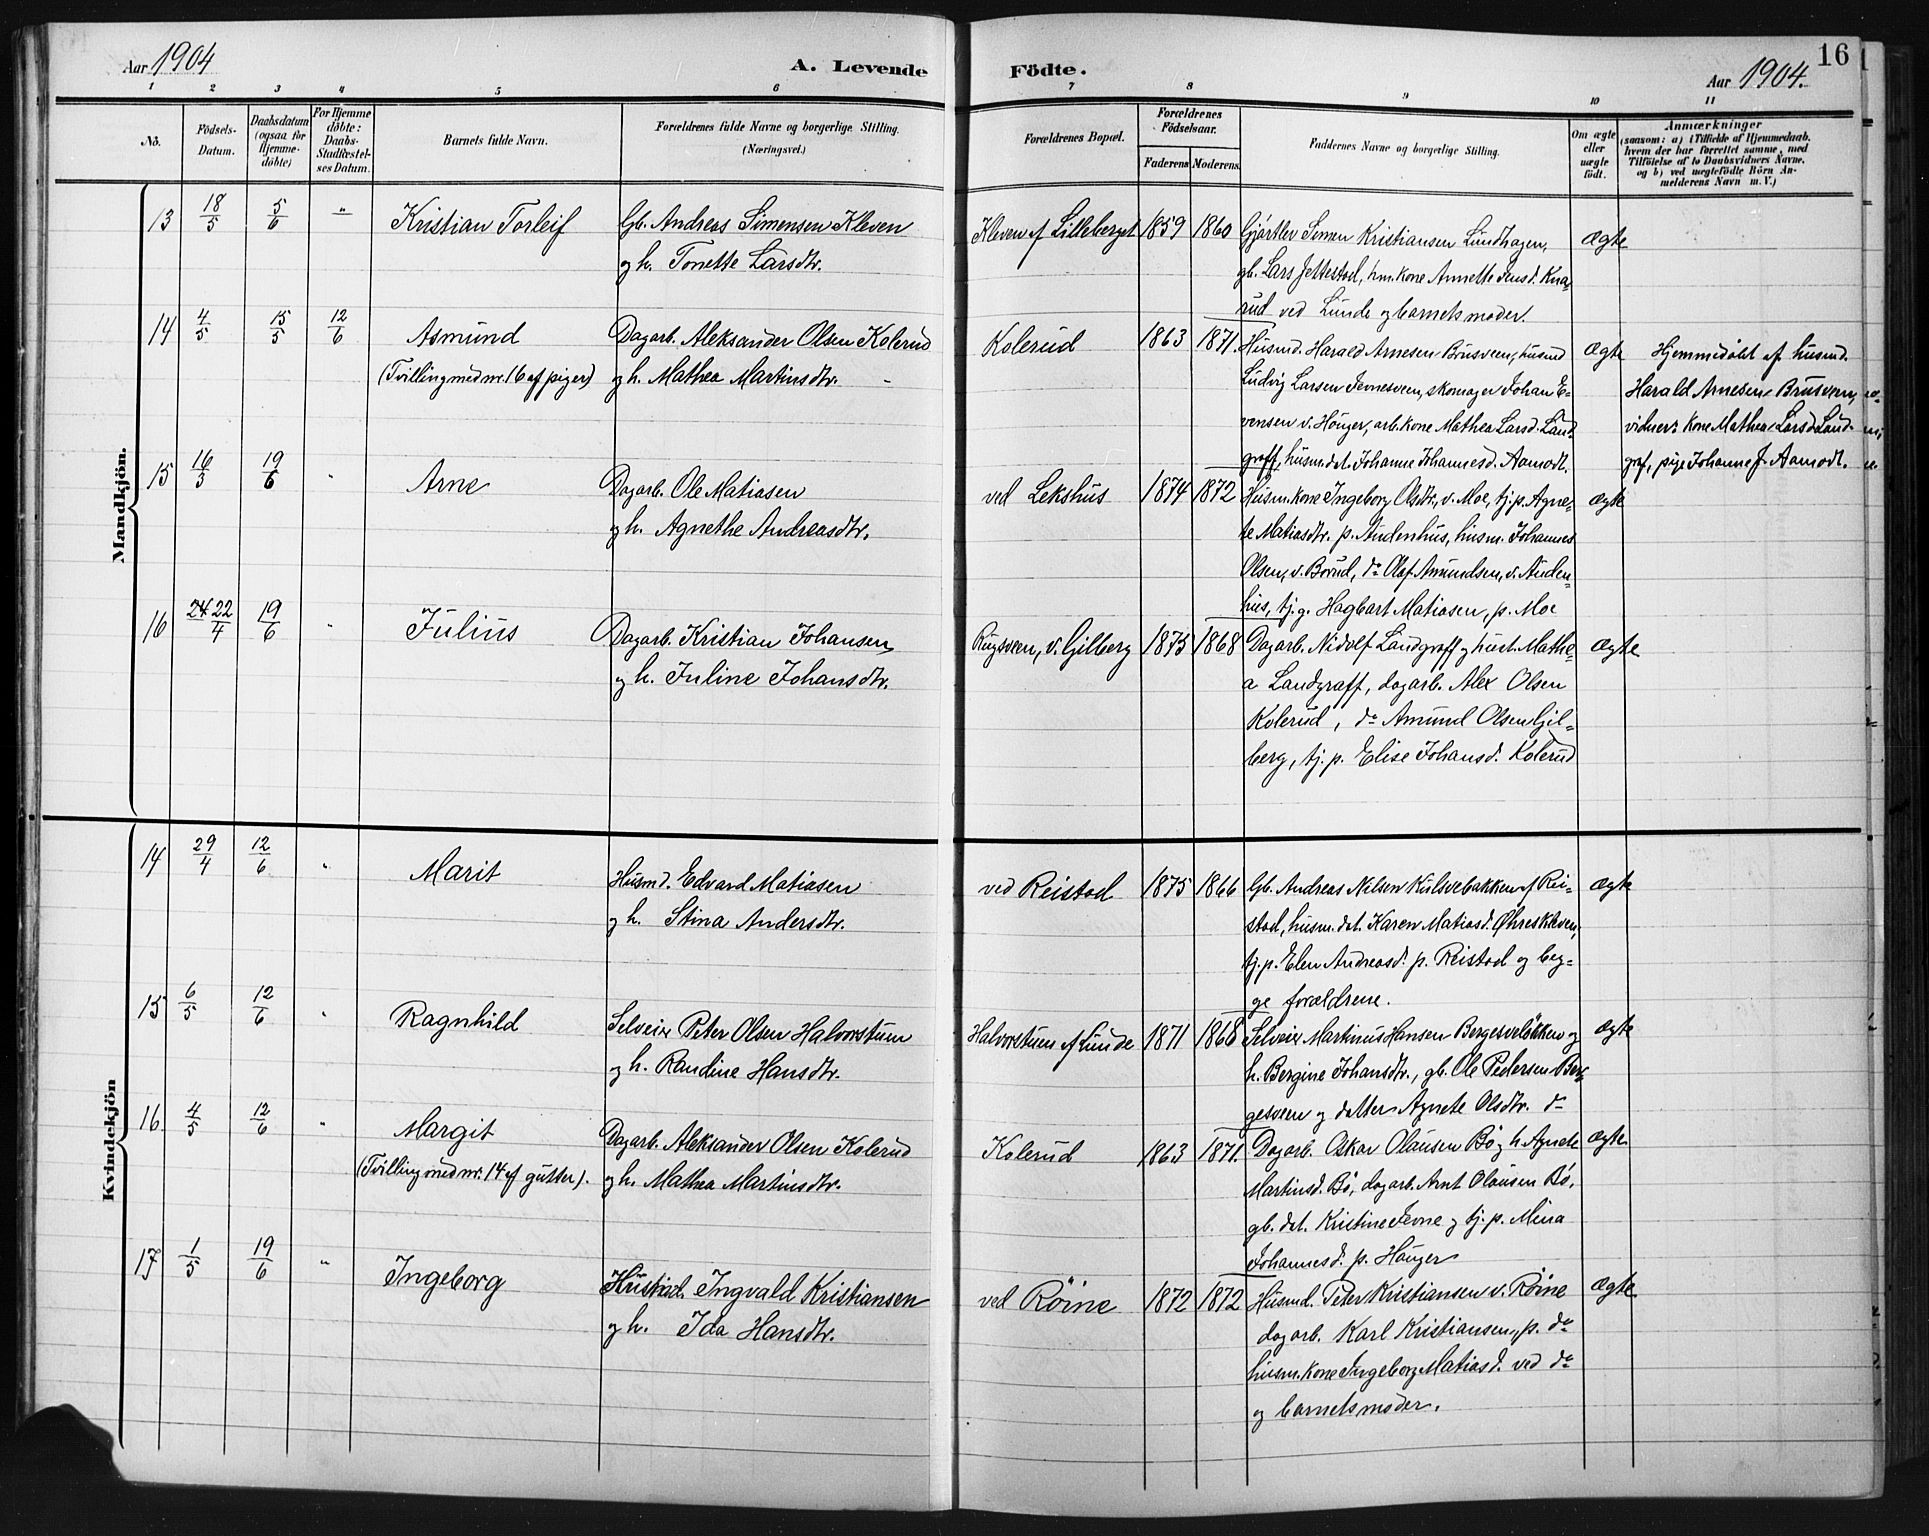 Aar 1904
A. Levende
Födte.
Aar 1904.
16
1 2 3 4 5 6 7 8 9 10 11
No.
Födsels-
Datum.
Daabsdatum
(ogsaa for
Hjemme-
döbte)
For Hjemme
döbte:
Daabs-
Stadfæstel-
ses Datum.
Barnets fulde Navn.
Forældrenes fulde Navne og borgerlige Stilling.
(Næringsvei.)
Forældrenes Bopæl.
Forældrenes
Födselsaar.
Faderens Moderens.
Faddernes Navne og borgerlige Stilling.
Om ægte
eller
uægte
födt.
Anmærkninger
(saasom: a) i Tilfælde af Hjemmedaab,
hvem der har forrettet samme, med
Tilföielse af to Daabsvidners Navne,
og b) ved uægtefödte Börn An-
melderens Navn m. V.)
Mandkjön.
13 18/5 5/6 " Kristian Torleif
Gb. Andreas Simensen Kleven
og h. Tonette Larsdtr.
Kleven af Lilleberget 1859 1860
Gjørtler Simen Kristiansen Lundhagen,
gb. Lars Jettestad, hm. kone Annette Jensd. Kna-
rud ved Lunde og barnets moder.
Ægte
14 4/5 15/5 12/6 Asmund
(Tvilling med nr. 16 af piger)
Dagarb. Aleksander Olsen Kolerud
og h. Mathea Martinsdtr.
Kolerud 1863 1871.
Husmd. Harald Arnesen Brusveen, husmd
Ludvig Larsen Jevnesveen, skomager Johan E-
vensen v. Houger, arb. kone Mathea Larsd. Land-
graff, husm. dat. Johanne Johannesd. Aamodt.
Ægte
Hjemmedøbt af husmd.
Harald Arnesen Brusveen,
vidner: kone Mathea Larsd. Land-
graf, pige Johanne J. Aamodt.
15 16/3 19/6 " Arne
Dagarb. Ole Matiasen
og h. Agnethe Andreasdtr.
ved Lekshus 1874 1872
Husm. kone Ingeborg Olsdtr. v. Moe, tj. p. Agne-
te Matiasdtr. p. Audenhus, husm. Johannes
Olsen, v. Borud, do Olaf Amundsen, v. Auden-
hus, tj. g. Hagbart Matiasen, p. Moe
Ægte
16 24 22/4 19/6 " Julius
Dagarb. Kristian Johansen
og h. Juline Johansdtr.
Rugsveen, v. Gilberg 1875 1868
Dagarb. Nidolf Landgraff og hust. Mathe-
a Landgraff, dagarb. Alex Olsen
Kolerud, do Amund Olsen Gil-
berg, tj. p. Elise Johansd. Kolerud
Ægte
Kvindekjön
14 29/4 12/6 " Marit
Husmd. Edvard Matiasen
og h. Stina Andersdtr.
ved Reistad 1875 1866
Gb. Andreas Nilsen Kulsvebakken af Rei-
stad, husm. dat. Karen Matiasd. Øhreskleven,
tj. p. Elen Andreasd. p. Reistad og beg-
ge forældrene.
Ægte
15 6/5 12/6 " Ragnhild
Selveier Peter Olsen Halvorstuen
og h. Randine Hansdtr.
Halvorstuen af Lunde 1871 1868
Selveier Martinus Hansen Bergesveløkken og
h. Bergine Johansdtr., gb. Ole Pedersen Ber-
gesveen og datter Agnete Olsdtr. do
Ægte
16 4/5 12/6 " Margit
(Tvilling med nr. 14 af gutter).
Dagarb. Aleksander Olsen Kolerud
og h. Mathea Martinsdtr.
Kolerud 1863 1871.
Dagarb. Oskar Olausen Bø og h. Agnete
Martinsd. Bø, dagarb. Arnt Olausen Bø,
gb. dat. Kristine Jevne og tj. p. Mina
Johannesd. p. Hauger
Ægte
17 1/5 19/6 " Ingeborg
Husmd. Ingvald Kristiansen
og h. Ida Hansdtr.
ved Røine 1872 1872
Husmd. Peter Kristiansen v. Røine
dagarb. Karl Kristiansen, p. do
husm. kone Ingeborg Matiasd. ved do
og barnets moder.
Ægte